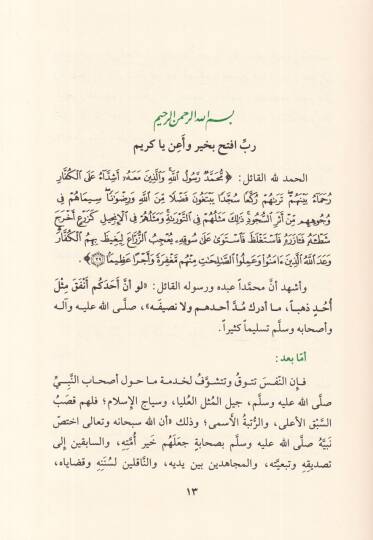 بسم الله الرحمن الرحيم
ربِّ افتح بخير وأَعِن يا كريم
الحمد لله القائل: ﴿مُّحَمَّدٌ رَّسُولُ ٱللَّهِۚ وَٱلَّذِينَ مَعَهُۥٓ أَشِدَّآءُ عَلَى ٱلۡكُفَّارِ
رُحَمَآءُ بَيۡنَهُمۡۖ تَرَىٰهُمۡ رُكَّعٗا سُجَّدٗا يَبۡتَغُونَ فَضۡلٗا مِّنَ ٱللَّهِ وَرِضۡوَٰنٗاۖ سِيمَاهُمۡ فِي
وُجُوهِهِم مِّنۡ أَثَرِ ٱلسُّجُودِۚ ذَٰلِكَ مَثَلُهُمۡ فِي ٱلتَّوۡرَىٰةِۚ وَمَثَلُهُمۡ فِي ٱلۡإِنجِيلِ كَزَرۡعٍ أَخۡرَجَ
شَطۡـَٔهُۥ فَـَٔازَرَهُۥ فَٱسۡتَغۡلَظَ فَٱسۡتَوَىٰ عَلَىٰ سُوقِهِۦ يُعۡجِبُ ٱلزُّرَّاعَ لِيَغِيظَ بِهِمُ ٱلۡكُفَّارَۗ
وَعَدَ ٱللَّهُ ٱلَّذِينَ ءَامَنُواْ وَعَمِلُواْ ٱلصَّٰلِحَٰتِ مِنۡهُم مَّغۡفِرَةٗ وَأَجۡرًا عَظِيمَۢا ٢٩﴾.
وأشهد أنَّ محمَّداً عبده ورسوله القائل: «لو أنَّ أَحَدَكُم أَنْفَقَ مِثْلَ
أُحُدٍ ذهباً، ما أدرك مُدَّ أحدهم ولا نصيفَه»، صلَّى الله عليه وآله
وأصحابه وسلَّم تسليماً كثيراً.
أمّا بعد:
فإن النَّفسَ تتوقُ وتتشوَّفُ لخدمة ما حول أصحاب النَّبيِّ
صلَّى الله عليه وسلَّم، جيل المُثل العليا، وسياج الإسلام؛ فلهم قصَبُ
السَّبْق الأعلى، والرُّتبةُ الأسمى؛ وذلك «أن الله سبحانه وتعالى اختصّ
نبيَّه صلَّى الله عليه وسلَّم بصحابةٍ جعلَهُم خَير أمَّتِه، والسابقين إلى
تصديقِه وتبعيَّته، والمجاهدين بين يديه، والنَّاقلين لسُنَنِه وقضاياه،
١٣